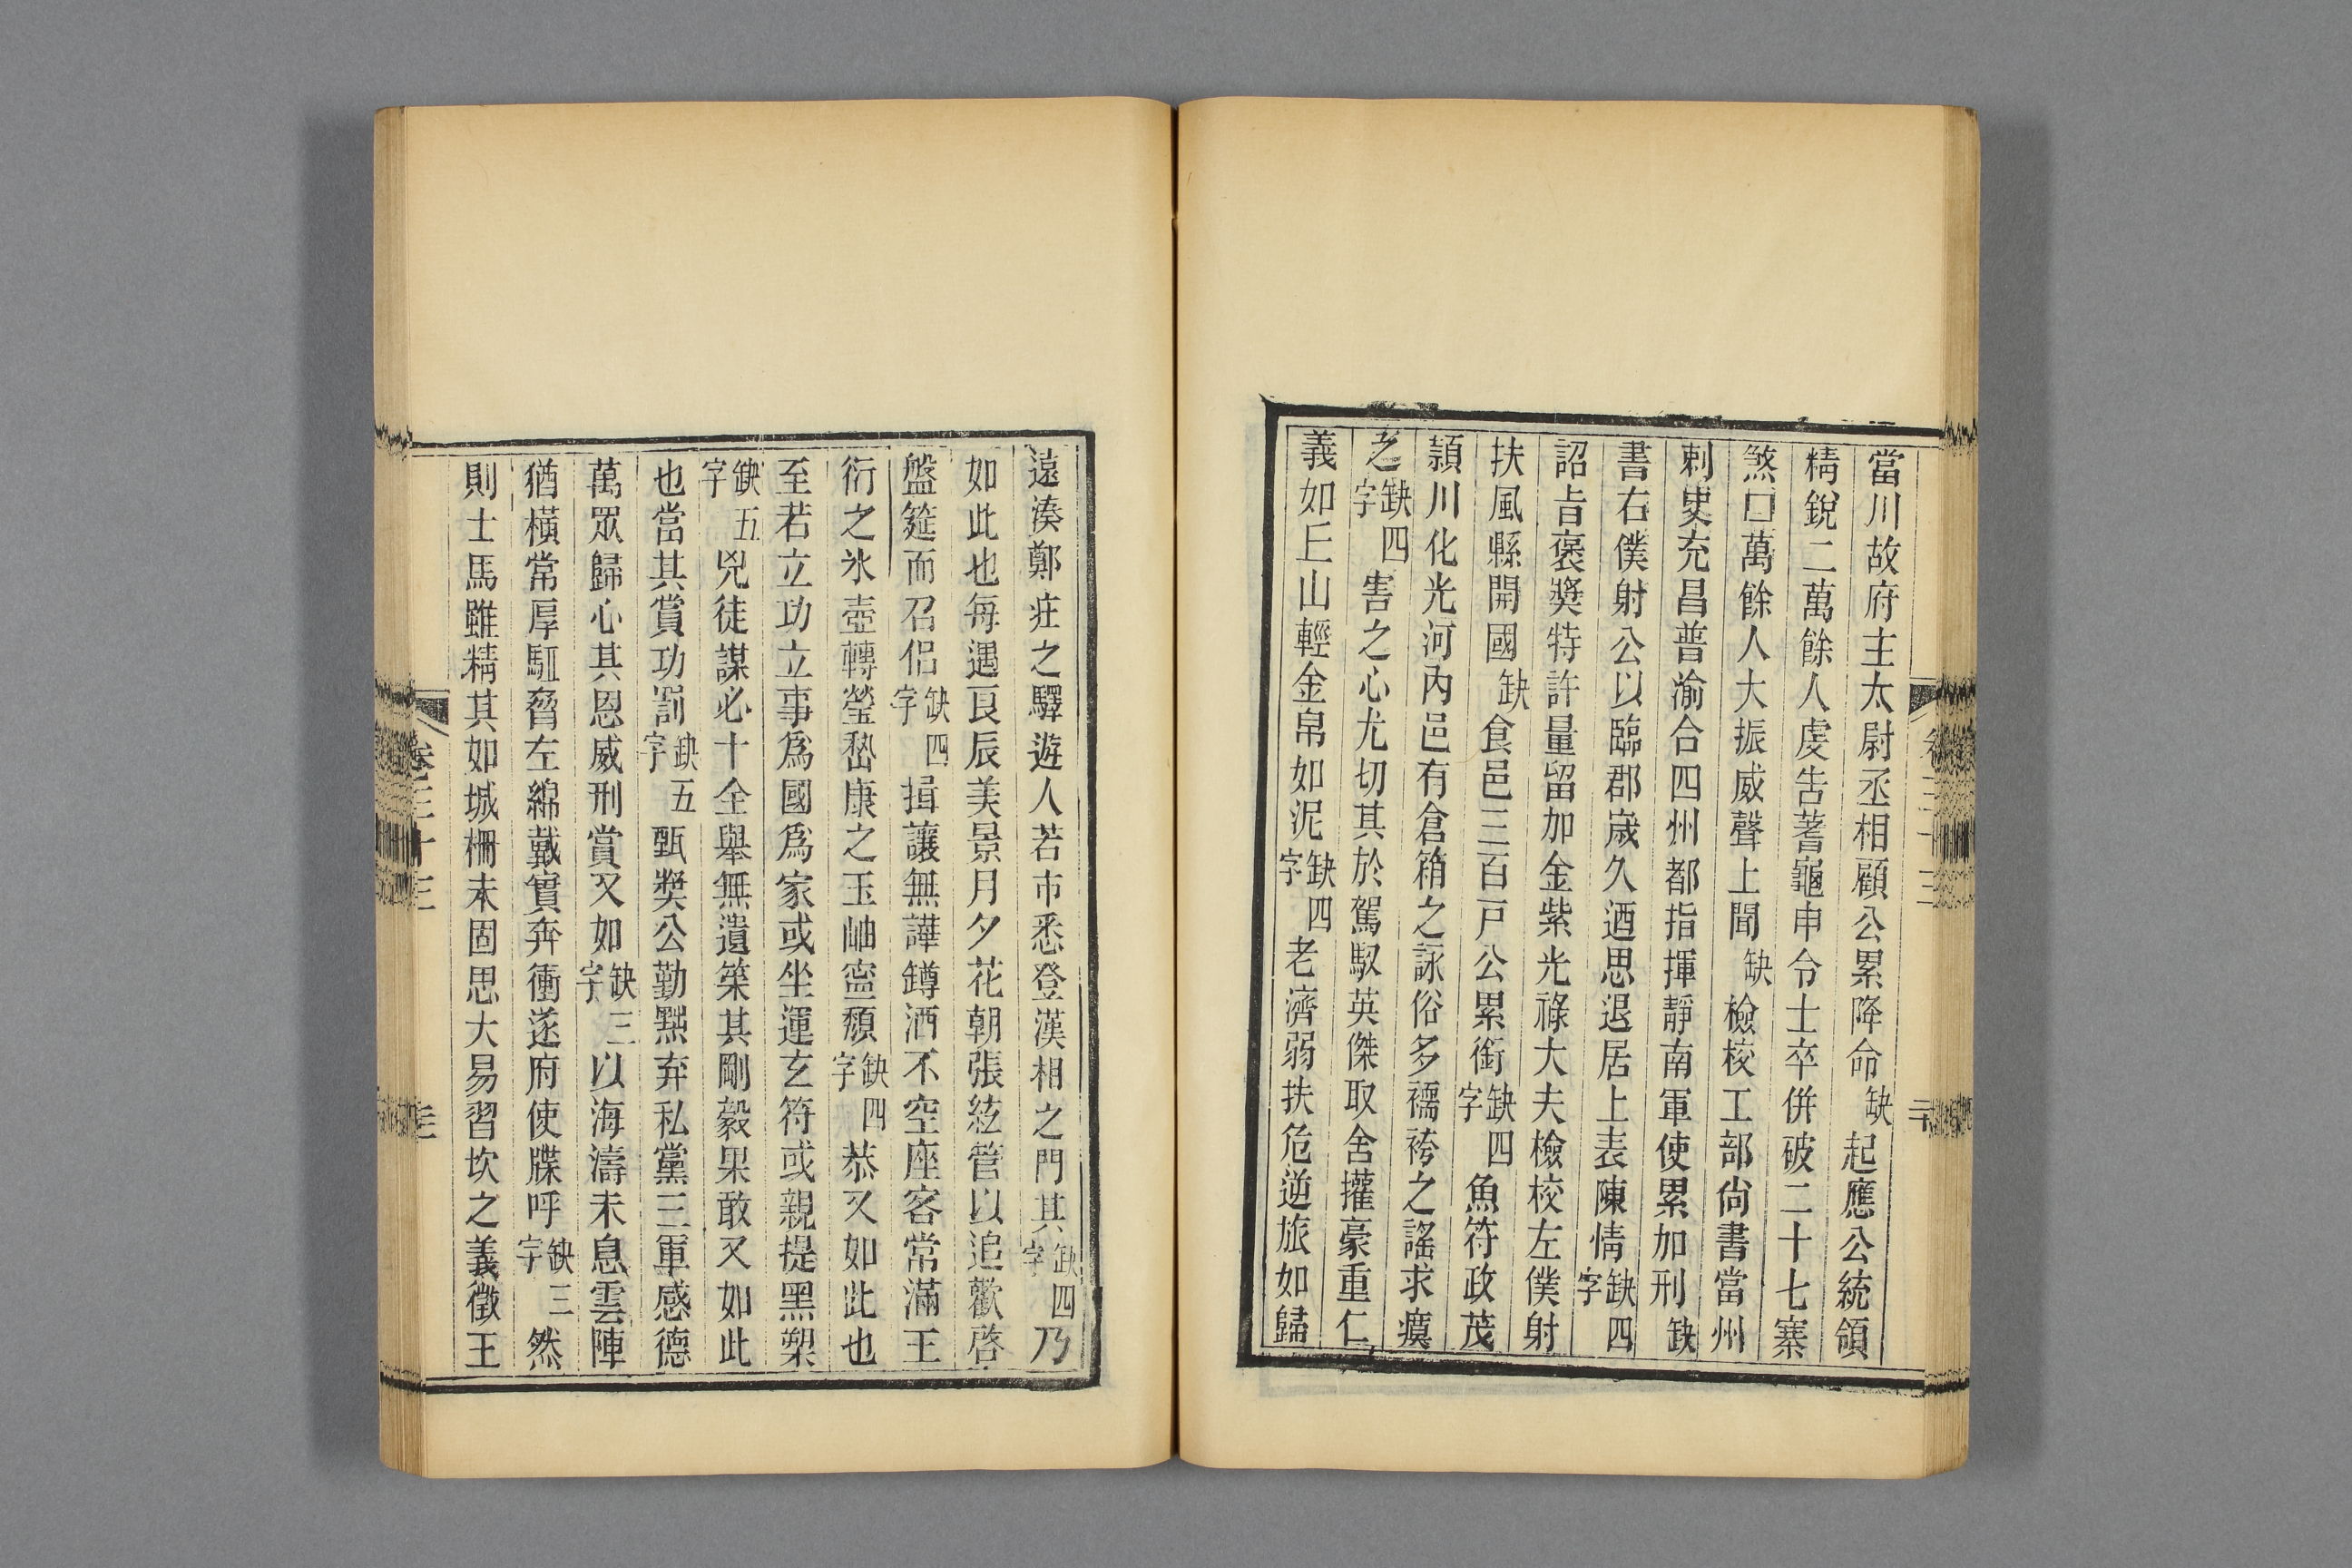 當川故府主太尉丞相顧公累降命缺起應公統領
精銳二萬餘人虔告蓍龜申令士卒併破二十七寨
煞囗萬餘人大振威聲上聞缺檢校工部尙書當州
刺史充昌普渝合四州都指揮靜南軍使累加刑缺
書右僕射公以臨郡歲久迺思退居上表陳情缺四字
詔旨褒奬特許量留加金紫光祿大夫檢校左僕射
扶風縣開國缺食邑三百戸公累銜缺四字魚符政茂
潁川化光河內邑有倉箱之詠俗多襦袴之謠求瘼
之缺四字害之心尤切其於駕馭英傑取舍攉豪重仁
義如丘山輕金帛如泥缺四字老濟弱扶危逆旅如歸
遠湊鄭莊之驛遊人若市悉登漢相之門其缺四字乃
如此也每遇良辰美景月夕花朝張絃管以追歡啓
盤筵而召侶缺四字揖讓無譁罇酒不空座客常滿王
衍之氷壺轉瑩嵇康之玉岫寧頹缺四字恭又如此也
至若立功立事爲國爲家或坐運玄符或親提黑槊
缺五字兇徒謀必十全舉無遺筞其剛毅果敢又如此
也當其賞功罰缺五字甄奬公勤黜弃私黨三軍感德
萬眾歸心其恩威刑賞又如缺三字以海濤未息雲陣
猶橫常厚駈脅左綿戴實奔衝遂府使牒呼缺三字然
則士馬雖精其如城柵未固思大易習坎之義徵王
卷三十三
三